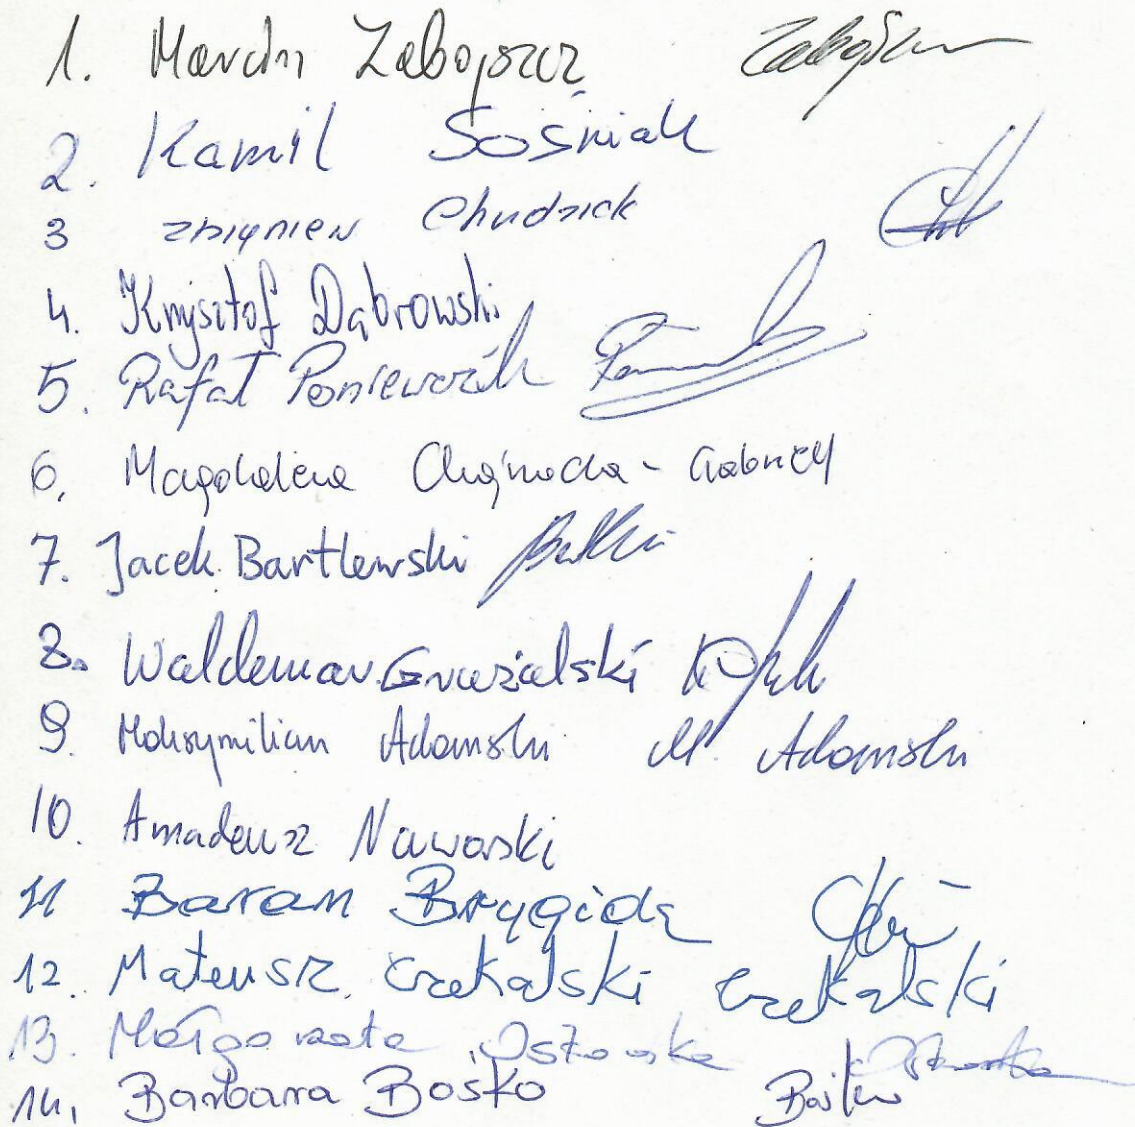 1. Marcin Zabojszcz
2. Kamil Sośniak
3 Zbigniew Chudzick
4. Krzysztof Dąbrowski
5. Rafał Poniewozik
6. Magdalena Chojnacka - Gabryel
7. Jacek Bartlewski
8. Waldemar Gruzalski
9. Maksymilian Adamski M. Adamski
10. Amadeusz Naworski
11 Baran Brygida
12. Mateusz Czekalski Czekalski
13. Małgorzata Ostowska
14. Barbara Bośko